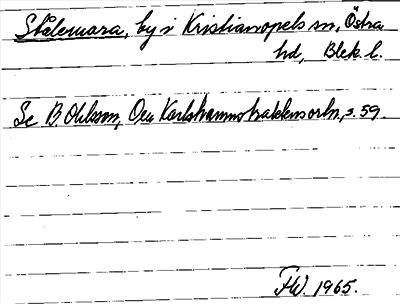 Stålemara, by i Kristianopels sn, Östra
hd, Blek. l.
Se B. Ohlsson, Om Karlshamnstraktens ortn., s. 59.
FW. 1965.